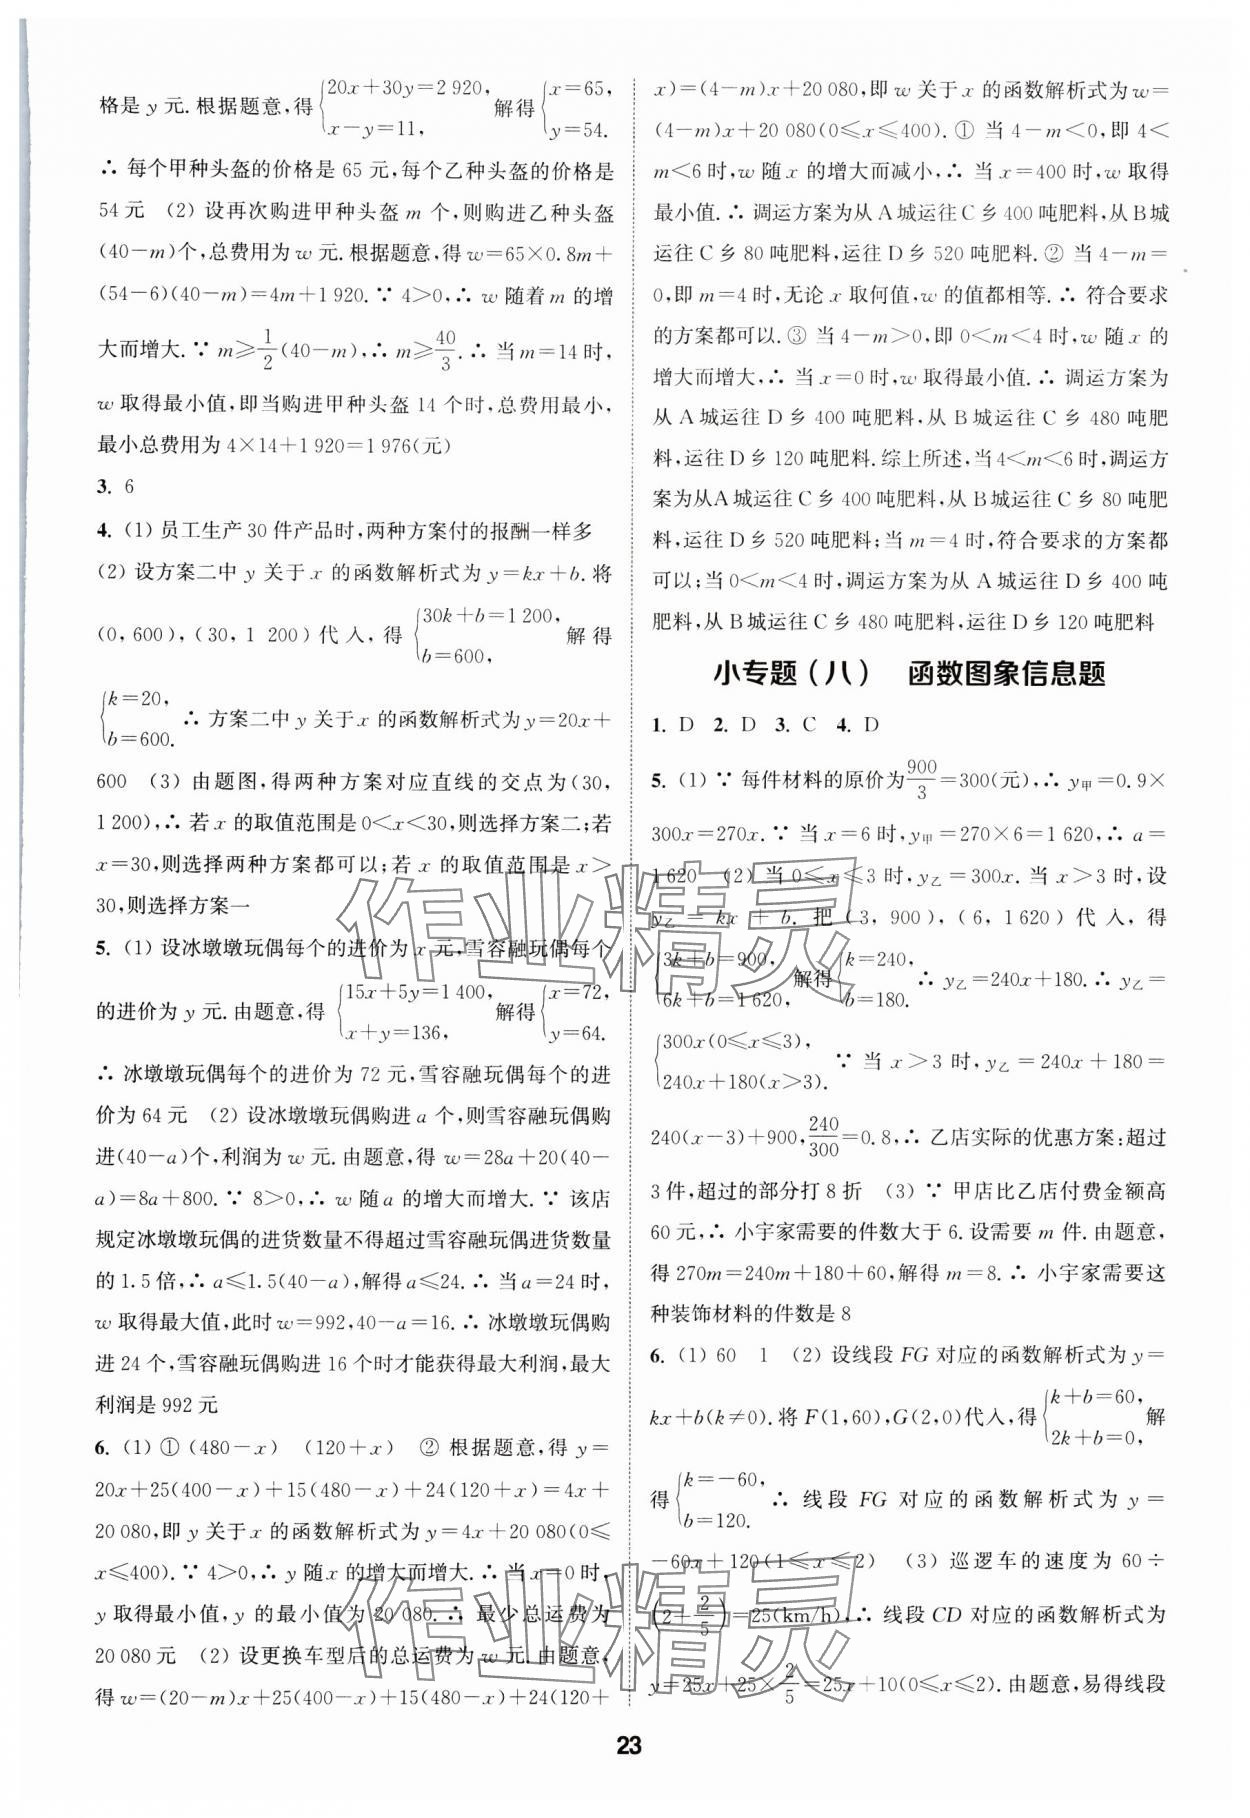 格是 y 元. 根据题意,得{20x+30y=2 920, x-y=11, 解得{x=65, y=54.
∴ 每个甲种头盔的价格是 65 元,每个乙种头盔的价格是
54 元 (2) 设再次购进甲种头盔 m 个,则购进乙种头盔
(40-m)个,总费用为 w 元. 根据题意,得 w=65×0.8m+
(54-6)(40-m)=4m+1 920. ∵ 4>0,∴ w 随着 m 的增
大而增大. ∵ m≥1/2(40-m),∴ m≥40/3. ∴ 当 m=14 时,
w 取得最小值,即当购进甲种头盔 14 个时,总费用最小,
最小总费用为 4×14+1 920=1 976(元)
3. 6
4. (1) 员工生产 30 件产品时,两种方案付的报酬一样多
(2) 设方案二中 y 关于 x 的函数解析式为 y=kx+b. 将
(0,600),(30,1 200)代入,得{30k+b=1 200, b=600, 解得
{k=20, b=600. ∴ 方案二中 y 关于 x 的函数解析式为 y=20x+
600 (3) 由题图,得两种方案对应直线的交点为(30,
1 200),∴ 若 x 的取值范围是 0<x<30,则选择方案二;若
x=30,则选择两种方案都可以;若 x 的取值范围是 x>
30,则选择方案一
5. (1) 设冰墩墩玩偶每个的进价为 x 元,雪容融玩偶每个
的进价为 y 元. 由题意,得{15x+5y=1 400, x+y=136, 解得{x=72, y=64.
∴ 冰墩墩玩偶每个的进价为 72 元,雪容融玩偶每个的进
价为 64 元 (2) 设冰墩墩玩偶购进 a 个,则雪容融玩偶购
进(40-a)个,利润为 w 元. 由题意,得 w=28a+20(40-
a)=8a+800. ∵ 8>0,∴ w 随 a 的增大而增大. ∵ 该店
规定冰墩墩玩偶的进货数量不得超过雪容融玩偶进货数量
的 1.5 倍,∴ a≤1.5(40-a),解得 a≤24. ∴ 当 a=24 时,
w 取得最大值,此时 w=992,40-a=16. ∴ 冰墩墩玩偶购
进 24 个,雪容融玩偶购进 16 个时才能获得最大利润,最大
利润是 992 元
6. (1) ① (480-x) (120+x) ② 根据题意,得 y=
20x+25(400-x)+15(480-x)+24(120+x)=4x+
20 080,即 y 关于 x 的函数解析式为 y=4x+20 080(0≤
x≤400). ∵ 4>0,∴ y 随 x 的增大而增大. ∴ 当 x=0 时,
y 取得最小值,y 的最小值为 20 080. ∴ 最少总运费为
20 080 元 (2) 设更换车型后的总运费为 w 元. 由题意,
得 w=(20-m)x+25(400-x)+15(480-x)+24(120+
x)=(4-m)x+20 080,即 w 关于 x 的函数解析式为 w=
(4-m)x+20 080(0≤x≤400). ① 当 4-m<0,即 4<
m<6 时,w 随 x 的增大而减小,∴ 当 x=400 时,w 取得
最小值. ∴ 调运方案为从 A 城运往 C 乡 400 吨肥料,从 B 城
运往 C 乡 80 吨肥料,运往 D 乡 520 吨肥料. ② 当 4-m=
0,即 m=4 时,无论 x 取何值,w 的值都相等. ∴ 符合要求
的方案都可以. ③ 当 4-m>0,即 0<m<4 时,w 随 x 的
增大而增大,∴ 当 x=0 时,w 取得最小值. ∴ 调运方案为
从 A 城运往 D 乡 400 吨肥料,从 B 城运往 C 乡 480 吨肥
料,运往 D 乡 120 吨肥料. 综上所述,当 4<m<6 时,调运方
案为从 A 城运往 C 乡 400 吨肥料,从 B 城运往 C 乡 80 吨肥
料,运往 D 乡 520 吨肥料;当 m=4 时,符合要求的方案都
可以;当 0<m<4 时,调运方案为从 A 城运往 D 乡 400 吨
肥料,从 B 城运往 C 乡 480 吨肥料,运往 D 乡 120 吨肥料
小专题(八) 函数图象信息题
1. D 2. D 3. C 4. D
5. (1) ∵ 每件材料的原价为900/3=300(元),∴ y甲=0.9×
300x=270x. ∵ 当 x=6 时,y甲=270×6=1 620,∴ a=
1 620 (2) 当 0≤x≤3 时,y乙=300x. 当 x>3 时,设
y乙=kx+b. 把(3,900),(6,1 620)代入,得
{3k+b=900, 6k+b=1 620, 解得{k=240, b=180. ∴ y乙=240x+180. ∴ y乙=
{300x(0≤x≤3), 240x+180(x>3). ∵ 当 x>3 时,y乙=240x+180=
240(x-3)+900,240/300=0.8,∴ 乙店实际的优惠方案:超过
3 件,超过的部分打 8 折 (3) ∵ 甲店比乙店付费金额高
60 元,∴ 小宇家需要的件数大于 6. 设需要 m 件. 由题意,
得 270m=240m+180+60,解得 m=8. ∴ 小宇家需要这
种装饰材料的件数是 8
6. (1) 60 1 (2) 设线段 FG 对应的函数解析式为 y=
kx+b(k≠0). 将 F(1,60),G(2,0)代入,得{k+b=60, 2k+b=0, 解
得{k=-60, b=120. ∴ 线段 FG 对应的函数解析式为 y=
-60x+120(1≤x≤2) (3) 巡逻车的速度为 60÷
(2+2/5)=25(km/h),∴ 线段 CD 对应的函数解析式为
y=25x+25×2/5=25x+10(0≤x≤2). 由题意,易得线段
23
作业精灵
作业精灵